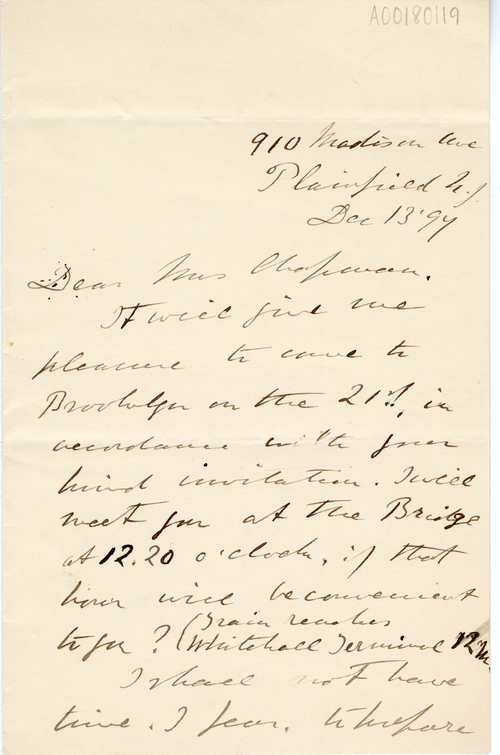 A00180119
910 Madison Ave
Plainfield N.J
Dec 13 '97
Dear Mrs Chapman.
It will give me
pleasure to come to
Brooklyn on the 21st, in
accordance with your
kind invitation. I will
meet you at the Bridge
at 12.20 o'clock, if that
hour will be convenient
to you? (Train reaches
Whitehall Terminal 12 M.
I shall not have
time, I fear, to prepare